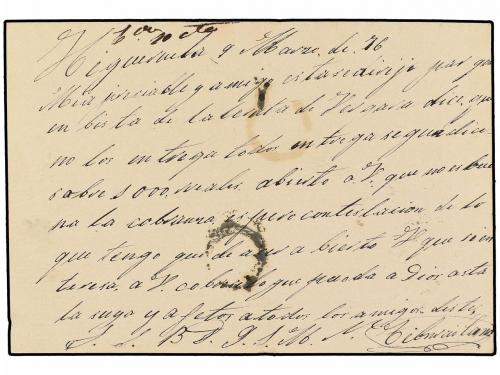 Higueruela 9 Marzo de 76
Mia preciable y amigo esta se dirije par que
en bista de la letra de Vergara dice que
no los entrega todos entrega segun dice
sobre 1000 reales. abierto a V. que no es bue
na la cobranza espero contestacion de lo
que tengo que de a bierto V que si in
teresa. a V. cobrar lo que pueda a Dios asta
la suya y afetos a todos los amigos de
S. S. B S. M.